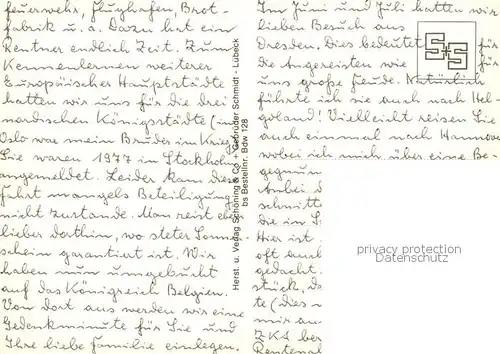 feuerwehr, Flughafen, Brot-
fabrik u. a. Dazu hat ein
Rentner endlich Zeit. Zum
Kennenlernen weiterer
Europäischer Hauptstädte
hatten wir uns für die drei
nordischen Königsstädte (in
Oslo war mein Bruder im Krieg
Sie waren 1977 in Stockholm
angemeldet. Leider kam die
Fahrt mangels Beteiligung
nicht zustande. Man reist eh
lieber dorthin, wo steter Sonne
schein garantiert ist. Wir
haben nun umgebucht
auf das Königreich Belgien.
Von dort aus werden wir eine
Gedenkminute für Sie und
Ihre liebe Familie einlegen.
Herst. u. Verlag Schöning & Co + Gebrüder Schmidt - Lübeck
bs Bestellnr. Bdw 128
Im Juni und Juli hatten wir
lieben Besuch aus
Dresden. Dies bedeutet für
die Angereisten wie für
uns große Freude. Natürlich
führte ich sie auch nach Hel
goland! Vielleicht reisen Sie
auch einmal nach Hannove
wobei ich mich über eine Be-
gegnun
Anbei d
schnitte
die in S
Hier ist
oft auch
gedacht
stück, da
te (dies
mir au
ZKA ber
Rentens
S+S
privacy protection
Datenschutz